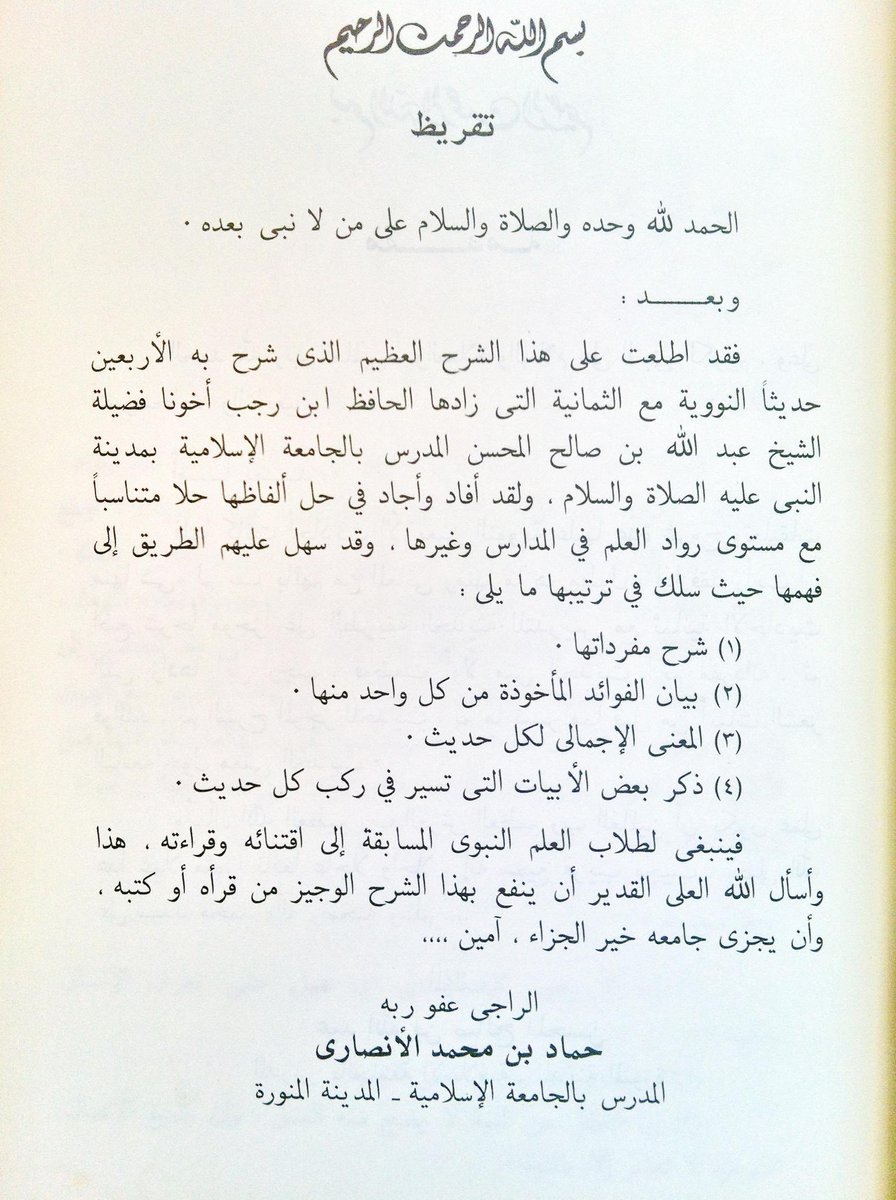 بسم الله الرحمن الرحيم
تقريظ
الحمد لله وحده والصلاة والسلام على من لا نبى بعده .
وبعـــــــد :
فقد اطلعت على هذا الشرح العظيم الذى شرح به الأربعين
حديثاً النووية مع الثمانية التى زادها الحافظ ابن رجب أخونا فضيلة
الشيخ عبد الله بن صالح المحسن المدرس بالجامعة الإسلامية بمدينة
النبى عليه الصلاة والسلام ، ولقد أفاد وأجاد في حل ألفاظها حلا متناسباً
مع مستوى رواد العلم في المدارس وغيرها ، وقد سهل عليهم الطريق إلى
فهمها حيث سلك في ترتيبها ما يلى :
(١) شرح مفرداتها .
(٢) بيان الفوائد المأخوذة من كل واحد منها .
(٣) المعنى الإجمالى لكل حديث .
(٤) ذكر بعض الأبيات التى تسير في ركب كل حديث .
فينبغى لطلاب العلم النبوى المسابقة إلى اقتنائه وقراءته ، هذا
وأسأل الله العلى القدير أن ينفع بهذا الشرح الوجيز من قرأه أو كتبه ،
وأن يجزى جامعه خير الجزاء ، آمين ،،،،
الراجى عفو ربه
حماد بن محمد الأنصارى
المدرس بالجامعة الإسلامية ـ المدينة المنورة